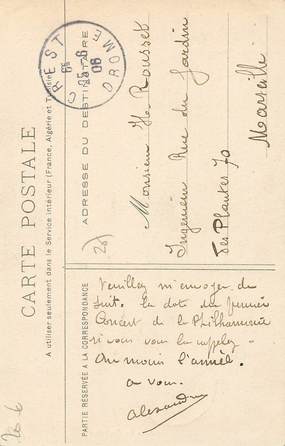 CARTE POSTALE
A utiliser seulement dans le Service intérieur (France, Algérie et Tunisie)
PARTIE RÉSERVÉE A LA CORRESPONDANCE
ADRESSE DU DESTINATAIRE
CREST
DROME
06
Monsieur H. Rousset
Ingénieur Rue du Jardin
des Plantes 70
Marseille
Veuillez m'envoyer de
suit. la date du premier
Concert de la Philharmonie
si vous vous la rappelez.
Au moins l'année.
a vous.
Alexandre